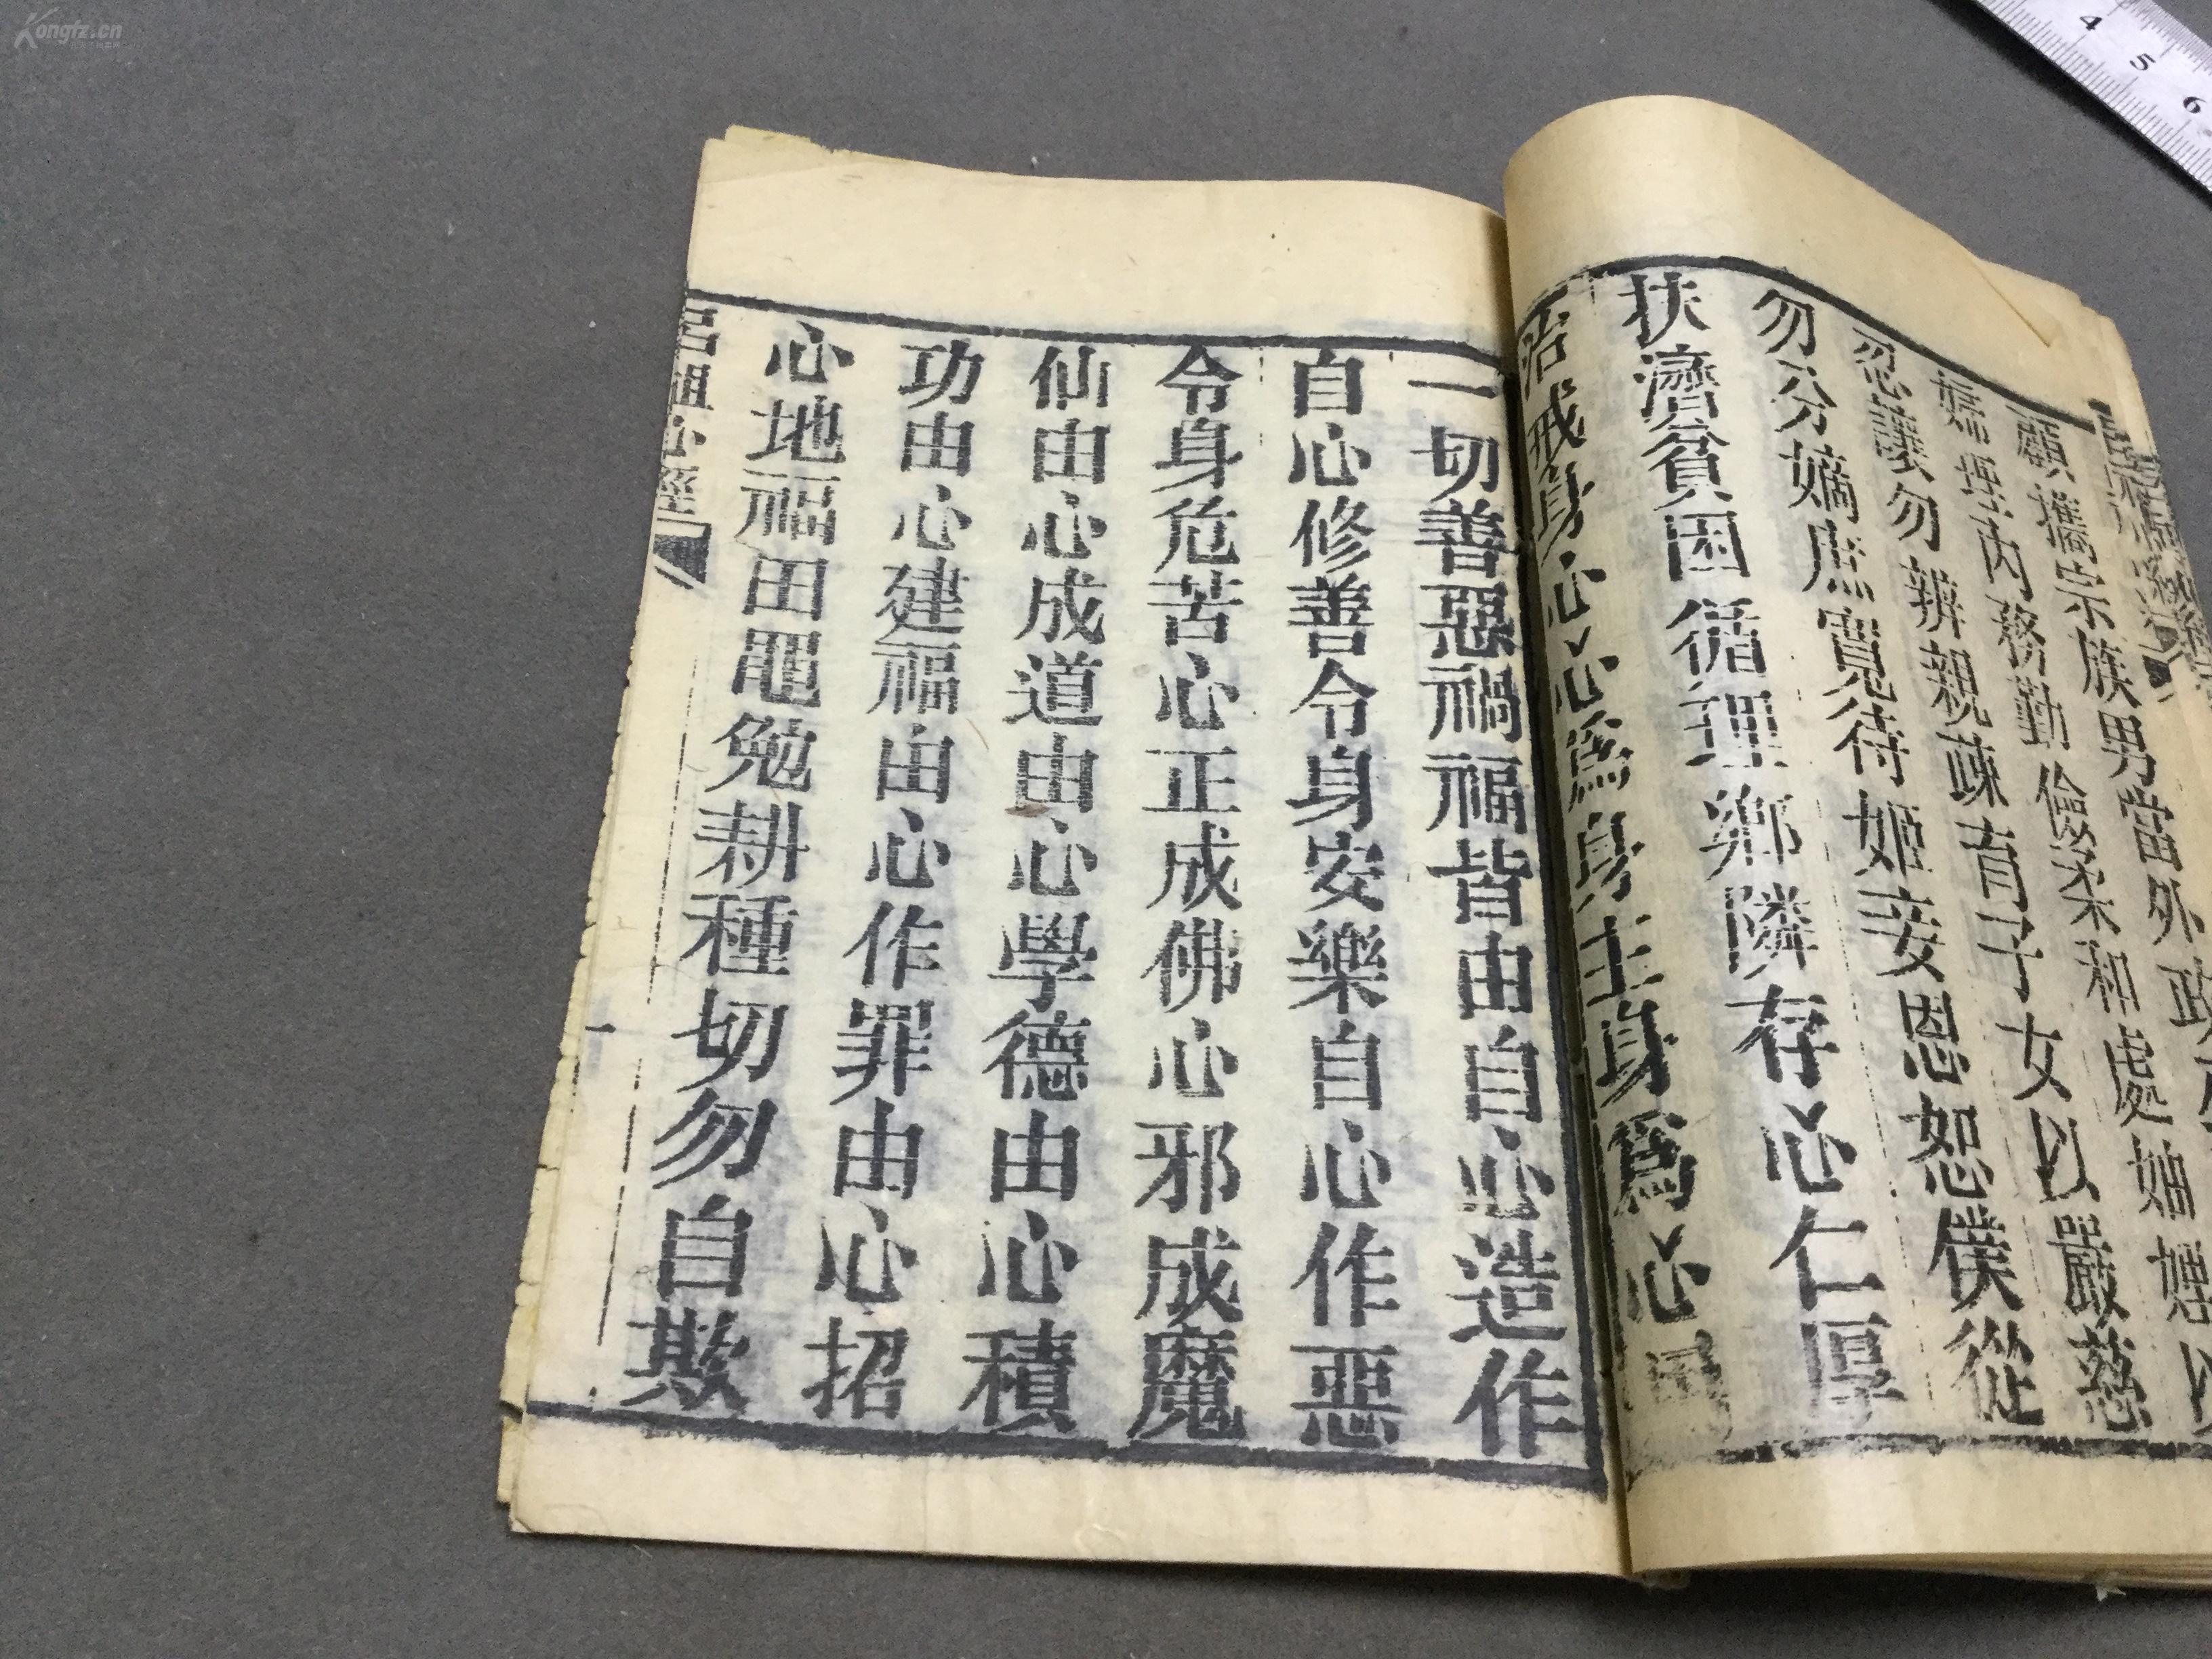 顧攜宗族男當外政
嫣理內務勤儉柔和處妯娌以
忍讓勿辨親疎育子女以嚴慈
勿分嫡庶寬待姬妾恩恕僕從
扶濟貧困循理鄉隣存心仁厚
戒身心心為身主身為心
一切善惡禍福皆由自心造作
自心修善令身安樂自心作惡
令身危苦心正成佛心邪成魔
仙由心成道由心學德由心積
功由心建福由心作罪由心招
心地福田黽勉耕種切勿自欺
呂祖心經
一
Kongfz.cn
4 5 6